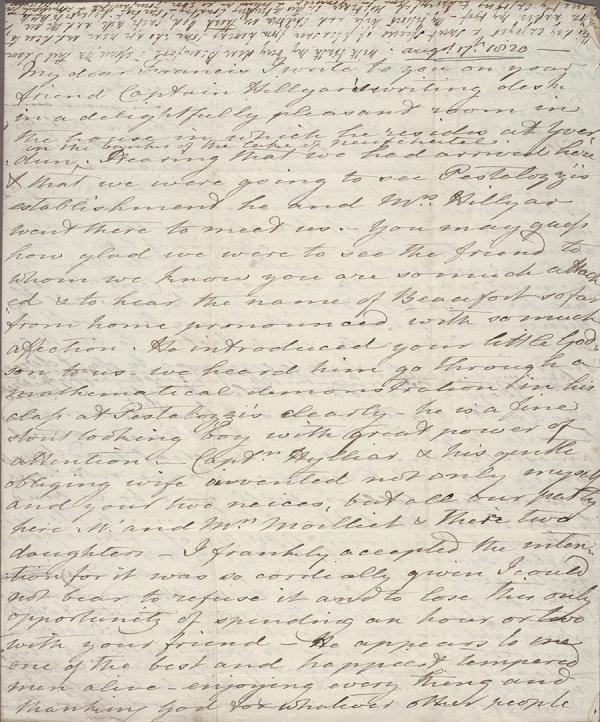 augst 17th 1820 —
My dear Francis I write to you on your
friend Captain Hillyar's writing desk
in a delightfully pleasant room in
the house in which he resides at Yver
on the banks of the lake of neufchatel
dun. Hearing that we had arrived here
& that we were going to see Pestalozzi's
establishment he and Mrs. Hillyar
went there to meet us. — You may guess
how glad we were to see the friend to
whom we know you are so much attach
ed & to hear the name of Beaufort so far
from home pronounced with so much
affection. He introduced your little God-
son to us we heard him go through a
mathematical demonstration in his
class at Pestalozzi's clearly — he is a fine
stout looking boy with great power of
attention — Captn. Hylliar & his gentle
obliging wife invented not only myself
and your two neices, but all our party
here Mr and Mrs Moilliet & there two
daughters — I frankly accepted the inten-
tion for it was so cordially given I could
not bear to refuse it and to lose this only
opportunity of spending an hour or two
with your friend — He appears to me
one of the best and happiest tempered
men alive — enjoying every thing and
thanking God for whatever other people